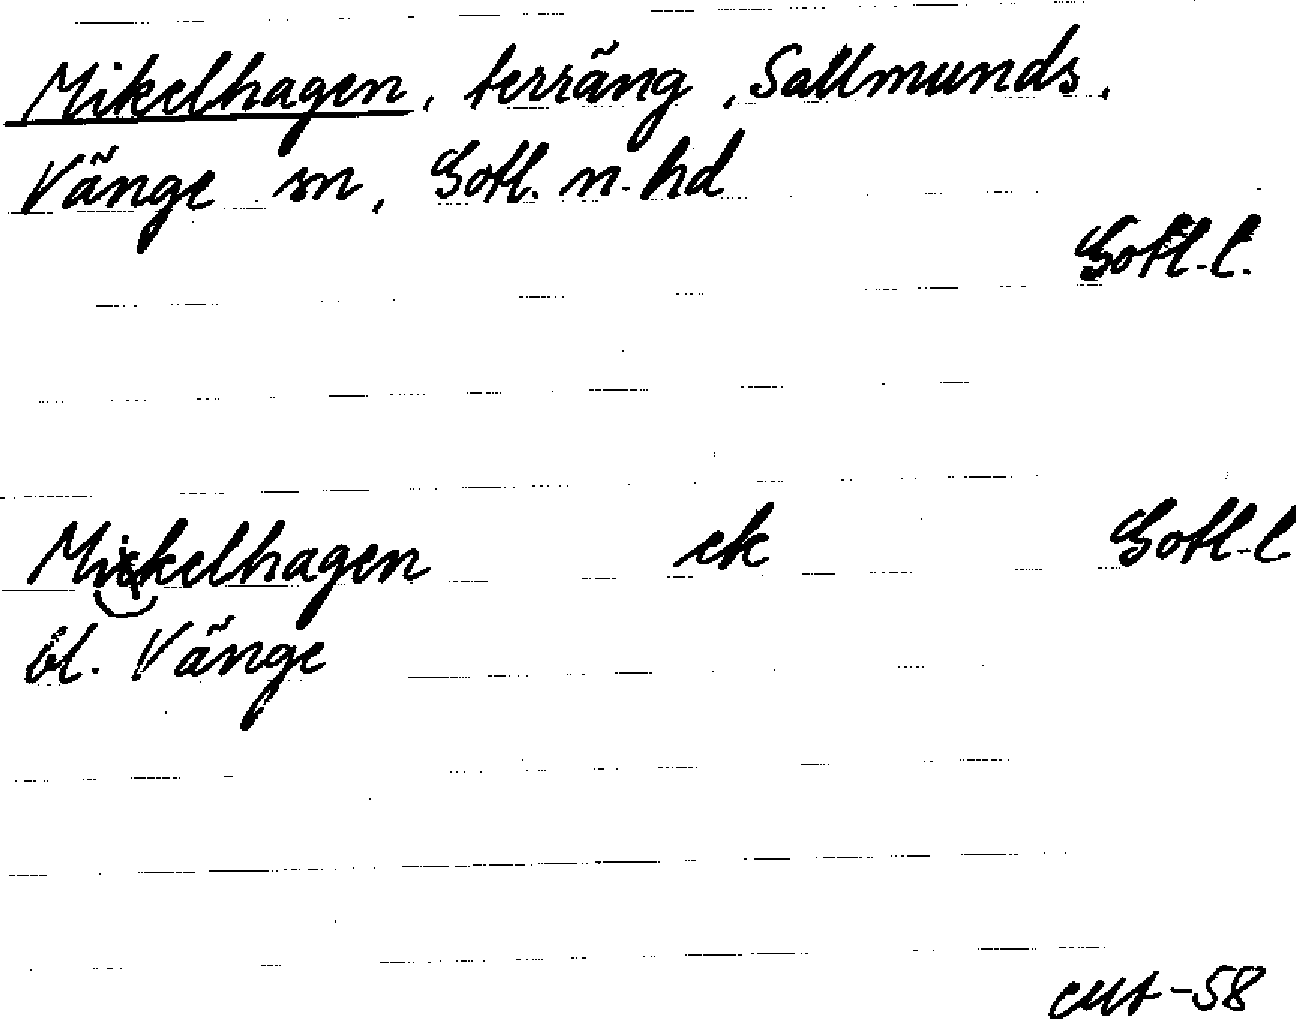 Mikelhagen, terräng, Sallmunds,
Vänge sn, Gotl. n. hd
Gotl. l.
Mickelhagen ek Gotl. l
bl. Vänge
-58